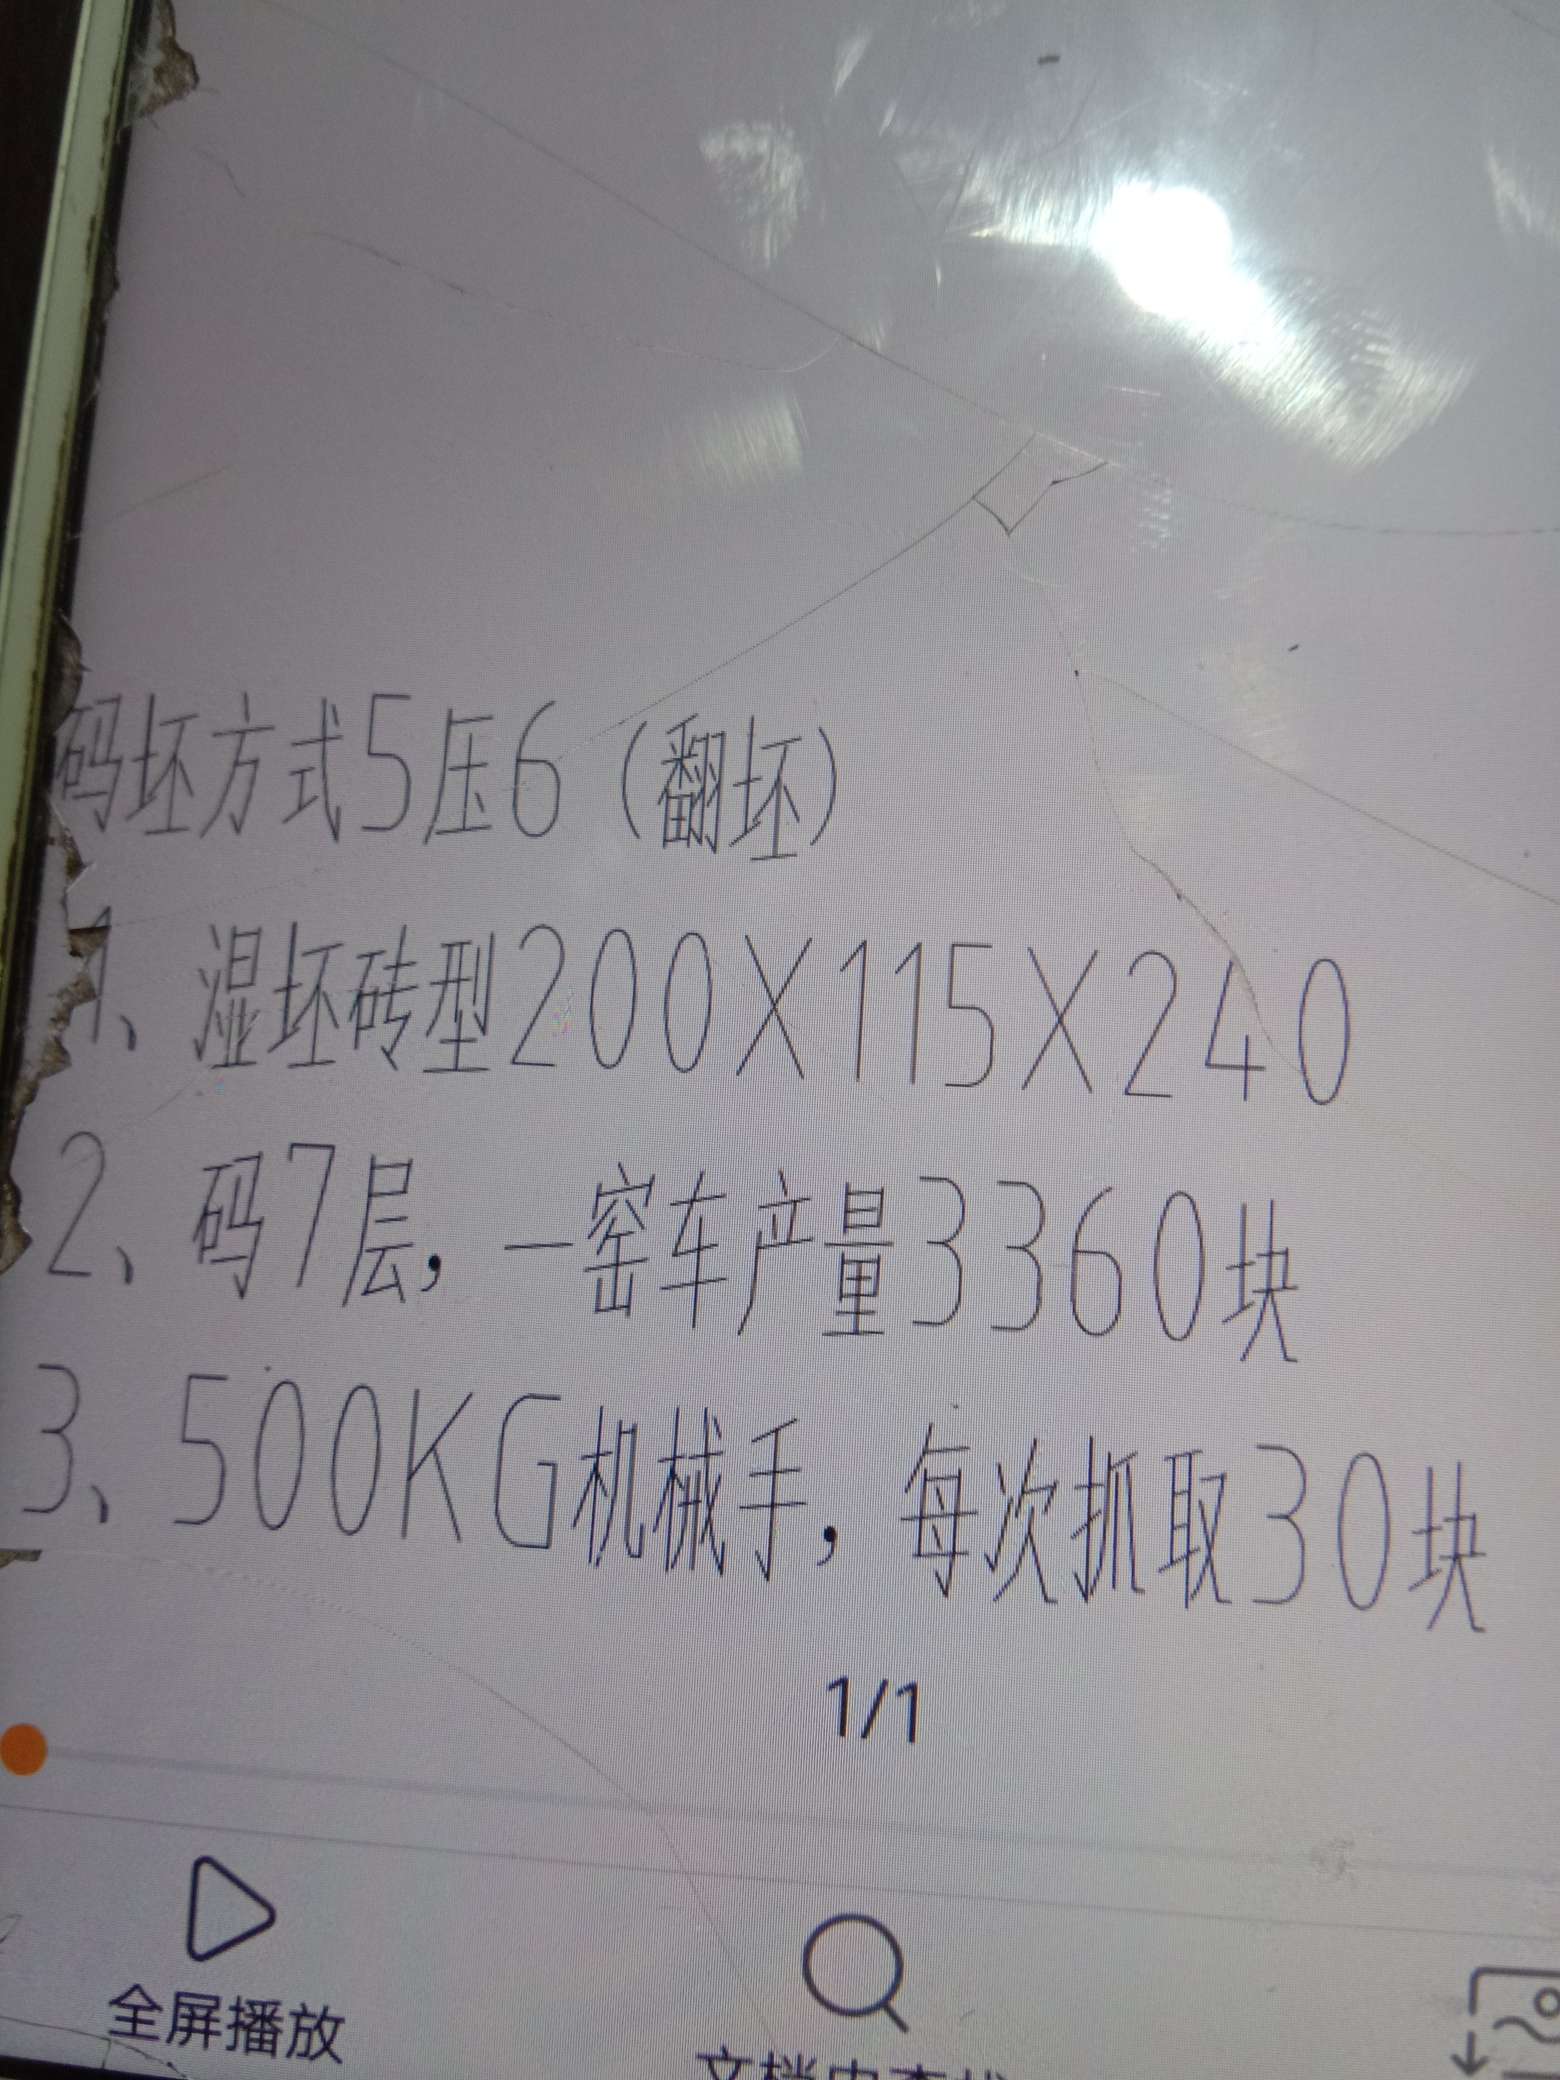 码坯方式5压6（翻坯）
1、湿坯砖型200X115X240
2、码7层，一窑车产量3360块
3、500KG机械手，每次抓取30块
1/1
全屏播放
文档内查找